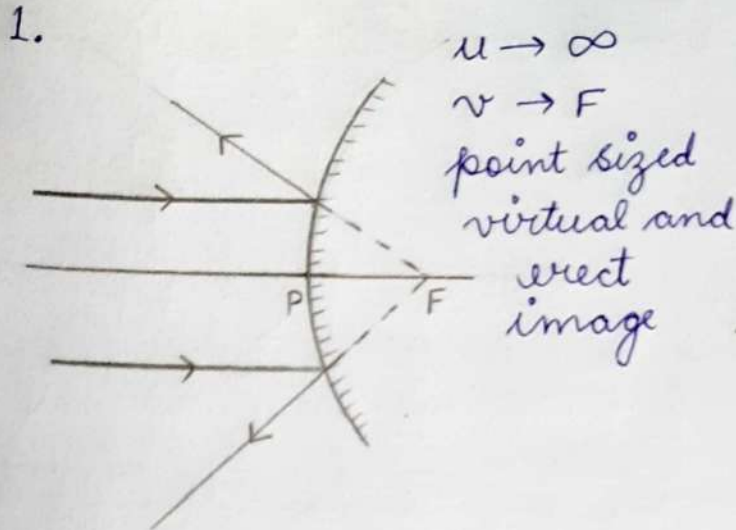 1.
u → ∞
v → F
point sized
virtual and
erect
image
P F